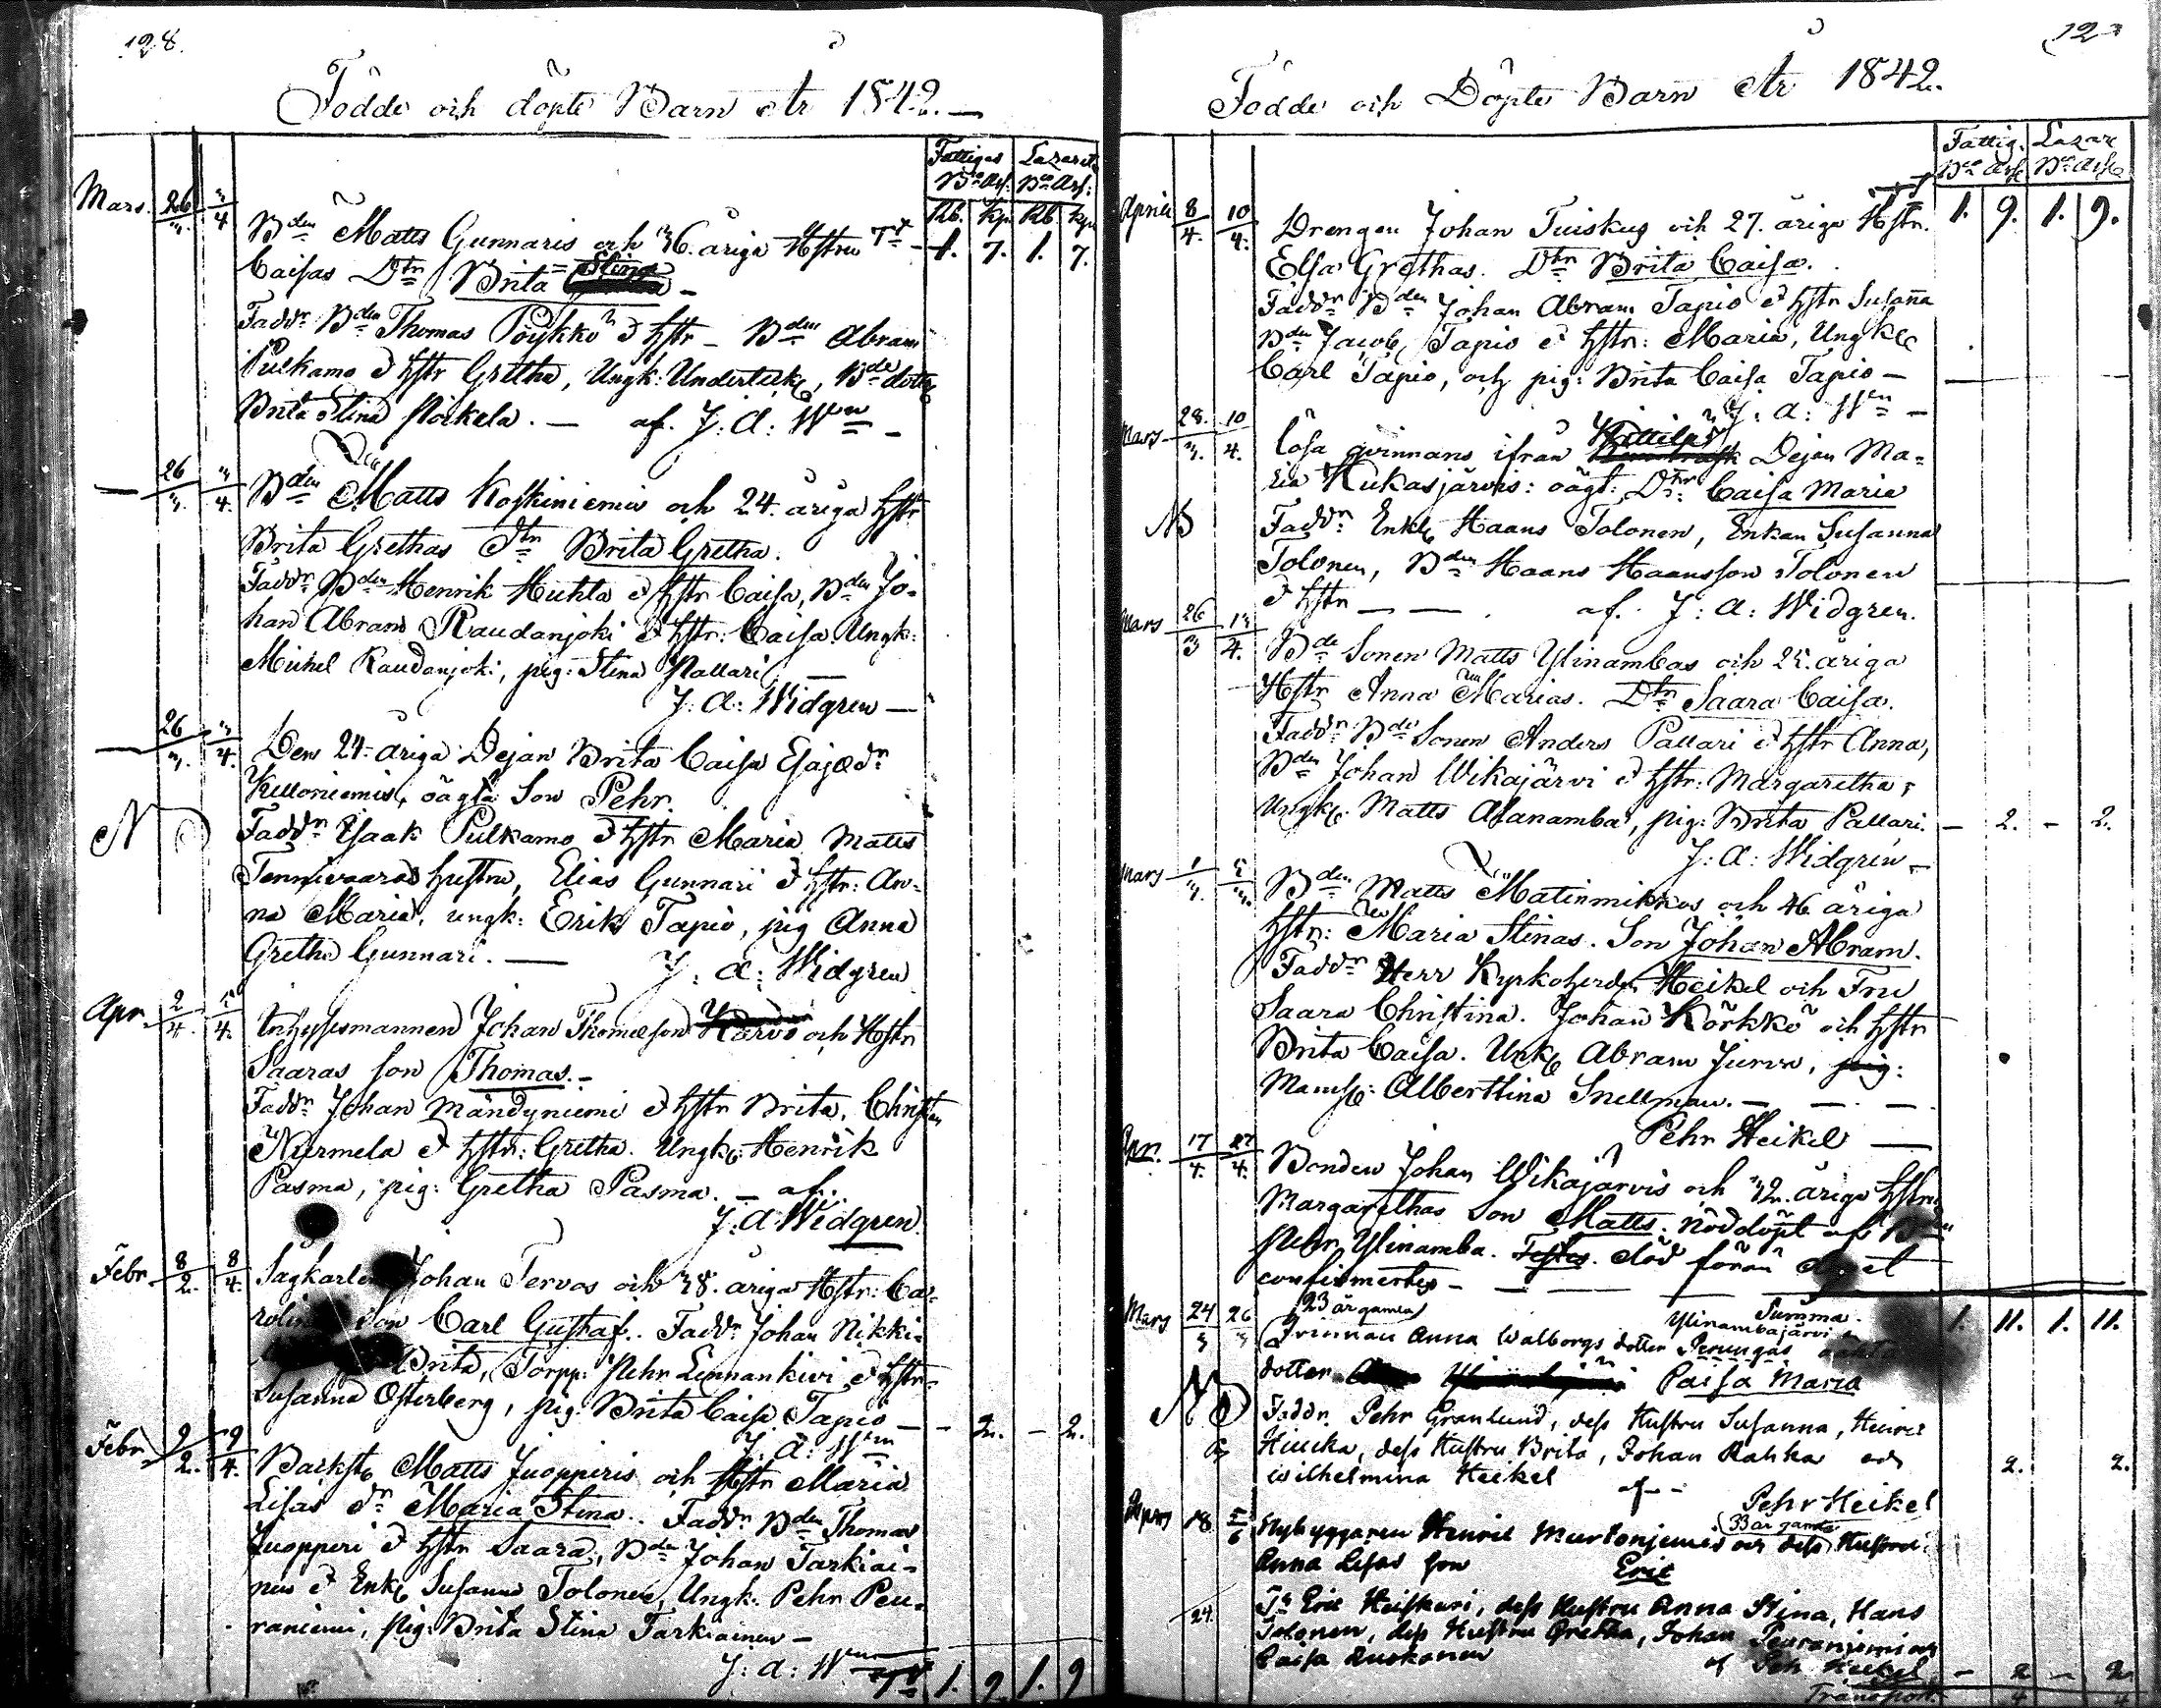 128.
Födde och döpte Barn År 1842.—
Fattigas Lazarets
Bss Ars: Bss Ars:
Rb. kp. Rb. kp.
Mars. 26/3. 3/4 Bden Matts Gunnaris och 36. åriga Hstru 1. 7. 1. 7.
Caisas Dtr Brita Stina —
Faddr Bden Thomas Pöykkö & hstr — Bden Abram
Pulkamo & hstr Gretha, Ungk: Undertecke, Bde dottr
Brita Stina Pörkela. — af. J: A: Wn —
— 26/3. 3/4. Bden Matts Koskiniemis och 24. åriga hstr
Brita Grethas Dtr Brita Gretha.
Faddr Bden Henrik Huhta & hstr Caisa, Bden Jo-
han Abram Raudanjoki & hstr: Caisa. Ungk:
Michel Raudanjoki, pig: Stina Pallari —
J: A: Widgren —
— 26/3. 3/4. Den 24-åriga Dejan Brita Caisa Esajædr
Killoniemis, oägta Son Pehr.
NB Faddr Isaak Pulkamo & hstr Maria, Matts
Tennivaaras hustru, Elias Gunnari & hstr: An-
na Maria, ungk: Erik Tapio, pig Anna
Gretha Gunnari. — J: A: Widgren
Apr. 2/4. /4. Inhysesmannen Johan Thomasson och Hstr
Saaras son Thomas. —
Faddr Johan Mändyniemi & hstr Brita, Christian
Niermela & hstr: Gretha. Ungk: Henrik
Pasma, pig: Gretha Pasma. — af.
J: A: Widgren.
Febr. 8/2. 8/4. Sågkarlen Johan Tervos och 38. åriga Hstr: Ca-
rolinas Son Carl Gustaf. Faddr Johan Nikki-
Brita, Torpp: Pehr Linnankivi & hstr
Susanna Österberg, pig: Brita Caisa Tapio — - 2. - 2.
J: A: Wn
Febr. 9/2. 9/4. Backst. Matts Juopperis och Hstr Maria
Lisas dr Maria Stina. Faddr Bden Thomas
Juopperi & hstr Saara, Bden Johan Tarkiai-
nen & Enk. Susanna Tolonen, Ungk. Pehr Peu-
raniemi, pig: Brita Stina Tarkiainen —
J: A: Wn 1. 9. 1. 9
Födde och Döpte Barn År 1842.
Fattig. Lazar
Bss Ars Bss Ars
April 8/4. 10/4. Drengen Johan Tuiskus och 27. åriga Hstr. 1. 9. 1. 9.
Elsa Grethas. Dtr Brita Caisa.
Faddr Bden Johan Abram Tapio & hstr Susanna
Bden Jacob Tapio & hstr: Maria, Ungk.
Carl Tapio, och pig: Brita Caisa Tapio —
J: A: Wn —
Mars 28./3. 10/4. Lösa qvinnans ifrån Kittilä Dejan Ma-
ria Kukasjärvis: oägt: Dtr: Caisa Maria
NB Faddr Enkl. Haans Tolonen, Enkan Susanna
Tolonen, Bden Haans Haansson Tolonen
& hstr — — af. J: A: Widgren.
Mars 26/3 /4. Bde Sonen Matts Ylinambas och 25. åriga
Hstr Anna Marias. Dtr Saara Caisa.
Faddr Bde Sonen Anders Pallari & hstr Anna,
Bden Johan Wikajärvi & hstr: Margaretha,
Ungk. Matts Alanamba, pig: Brita Pallari. — 2. — 2.
J: A: Widgren —
Mars 1/3. 5/3. Bden Matts Matinmikkos och 46 åriga
hstr: Maria Stinas. Son Johan Abram.
Faddr Herr Kyrkoherden Heikel och Fru
Saara Christina. Johan Körkkö och hstr
Brita Caisa. Unk. Abram Jurva, pig:
Mamsl: Alberttina Snellman. — — —
Pehr Heikel —
Apr. 17/4. 27/4. Bonden Johan Wikajärvis och 32. åriga hstru
Margarethas Son Matts. nöddöpt af Bden
Pehr Ylinamba. Testes. död förän dopet
confirmertes — — — —
Summa. 1. 11. 1. 11.
Mars 24/3 26/3 23 år gamla Ylinambajärvi
Qvinnan Anna Walborgs dotter Perungas
dotter Caisa Maria
NB Faddr. Pehr Granlund, dess Hustru Susanna, Henric
Hiucka, dess Hustru Brita, Johan Rahka och
Wilhelmina Heikel af — 2. 2.
Pehr Heikel
33 år gamla
18 5/6 Nybyggaren Henric Murtoniemis och dess Hustru
Anna Lisas son Eric
24 Ts Eric Heiskari, dess Hustru Anna Stina, Hans
Tolonen, dess Hustru Gretha, Johan Peuraniemi och
Caisa Ruokanen
af Peh Heikel — 2 — 2
Transport.